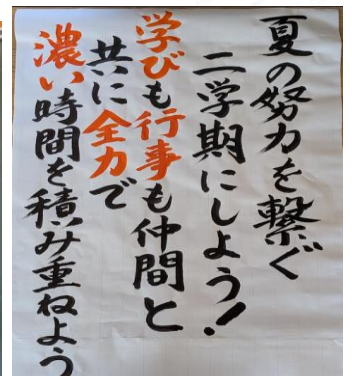 夏の努力を繋ぐ
二学期にしよう!
学びも行事も仲間と
共に全力で
濃い時間を積み重ねよう